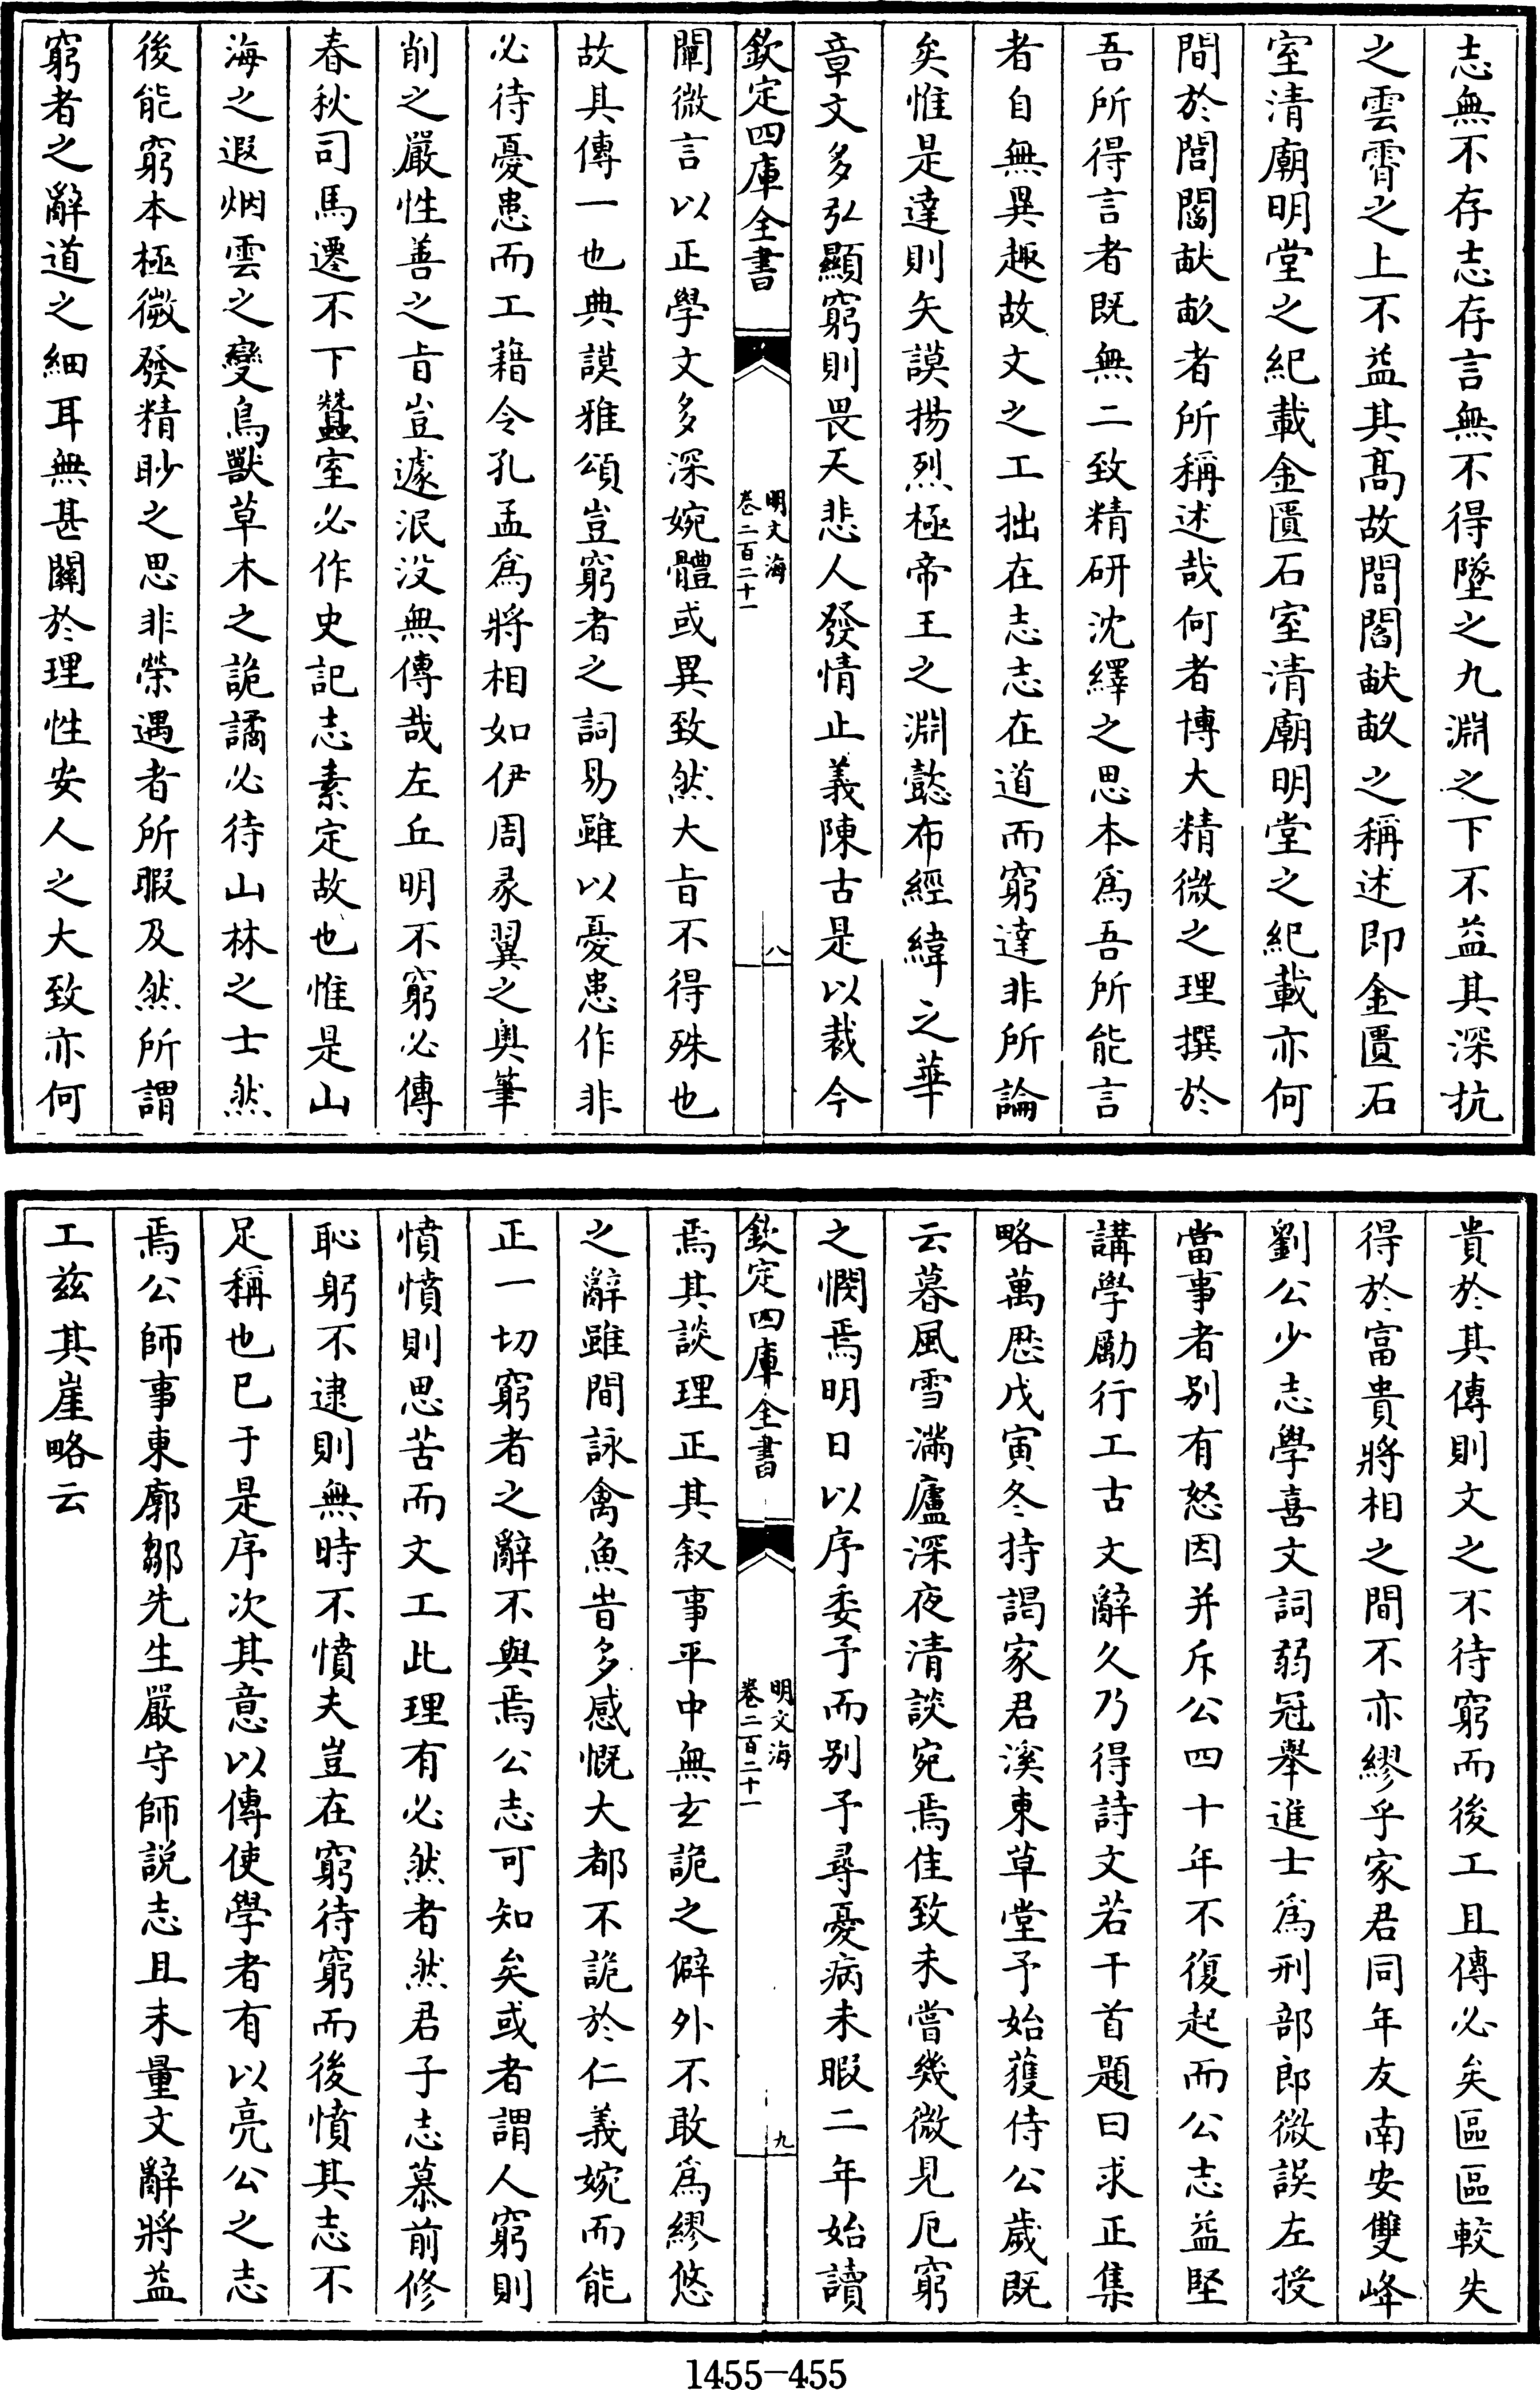 志無不存志存言無不得墜之九淵之下不益其深抗
之雲霄之上不益其髙故閭閻畎畝之稱述即金匱石
室清廟明堂之紀載金匱石室清廟明堂之紀載亦何
間於閭閻畎畝者所稱述哉何者博大精微之理撰於
吾所得言者既無二致精研沈繹之思本爲吾所能言
者自無異趣故文之工拙在志志在道而窮達非所論
矣惟是達則矢謨揚烈極帝王之淵懿布經緯之華
章文多弘顯窮則畏天悲人發情止義陳古是以裁今
欽定四庫全書
明文海
卷二百二十一
八
闡微言以正學文多深婉體或異致然大㫖不得殊也
故其傳一也典謨雅頌豈窮者之詞易雖以憂患作非
必待憂患而工藉令孔孟爲將相如伊周彖翼之奥筆
削之嚴性善之㫖豈遽泯没無傳哉左丘明不窮必傳
春秋司馬遷不下蠶室必作史記志素定故也惟是山
海之遐烟雲之變鳥獸草木之詭譎必待山林之士然
後能窮本極微發精眇之思非榮遇者所暇及然所謂
窮者之辭道之細耳無甚關於理性安人之大致亦何
貴於其傳則文之不待窮而後工且傳必矣區區較失
得於富貴將相之間不亦繆乎家君同年友南安雙峰
劉公少志學喜文詞弱冠舉進士爲刑部郎微誤左授
當事者别有怒因并斥公四十年不復起而公志益堅
講學勵行工古文辭久乃得詩文若干首題曰求正集
略萬歴戊寅冬持謁家君溪東草堂予始獲侍公歲既
云暮風雪滿廬深夜清談宛焉佳致未嘗幾微見厄窮
之憫焉明日以序委予而别予尋憂病未暇二年始讀
欽定四庫全書
明文海
卷二百二十一
九
焉其談理正其叙事平中無玄詭之僻外不敢爲繆悠
之辭雖間詠禽魚皆多感慨大都不詭於仁義婉而能
正一切窮者之辭不與焉公志可知矣或者謂人窮則
憤憤則思苦而文工此理有必然者然君子志慕前修
恥躬不逮則無時不憤夫豈在窮待窮而後憤其志不
足稱也已于是序次其意以傳使學者有以亮公之志
焉公師事東廓鄒先生嚴守師説志且未量文辭將益
工兹其崖略云
1455-455